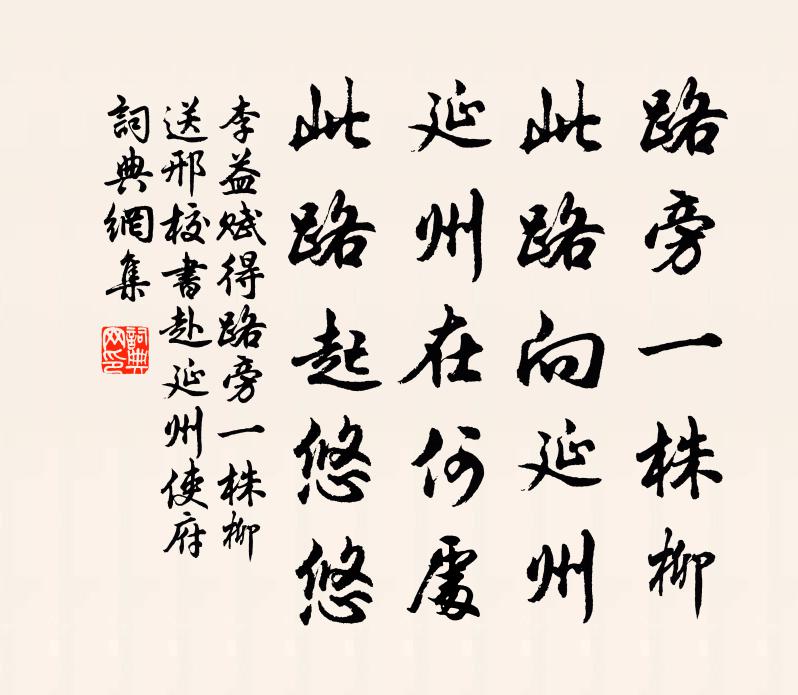 路旁一株柳
此路向延州
延州在何處
此路起悠悠
李益賦得路旁一株柳
送邢校書赴延州使府
詞典網集
詞典網印